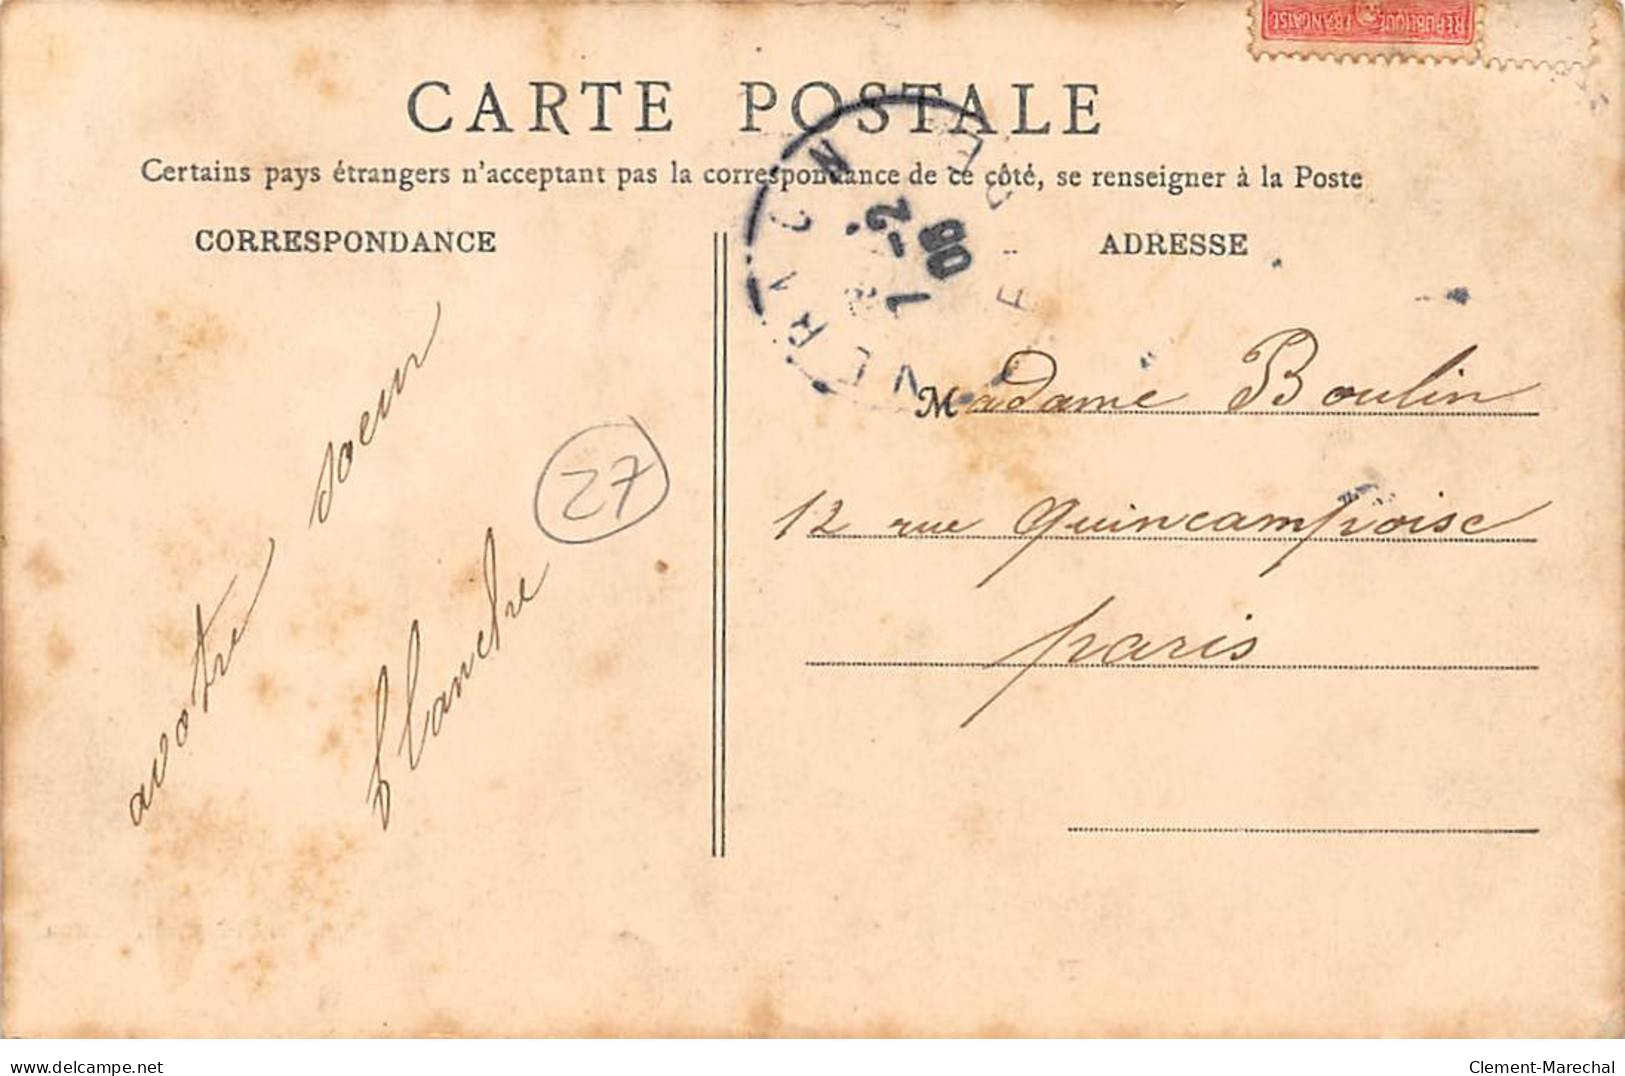 REPUBLIQUE FRANÇAISE
CARTE POSTALE
Certains pays étrangers n'acceptent pas la correspondance de ce côté, se renseigner à la Poste
CORRESPONDANCE
avotre soeur
Blanche
27
ADRESSE
Madame Boulin
12 rue Quincampoise
paris
delcampe.net
Clement-Marechal